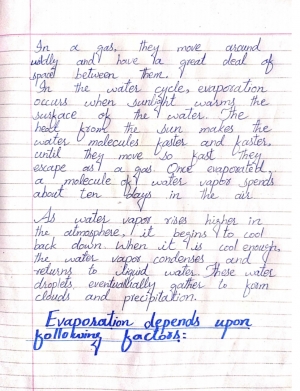 In a gas, they move around
wildly and have a great deal of
space between them.
In the water cycle, evaporation
occurs when sunlight warms the
surface of the water. The
heat from the sun makes the
water molecules faster and faster,
until they move so fast they
escape as a gas. Once evaporated,
a molecule of water vapor spends
about ten days in the air.
As water vapor rises higher in
the atmosphere, it begins to cool
back down. When it is cool enough,
the water vapor condenses and
returns to liquid water. These water
droplets eventually gather to form
clouds and precipitation.
Evaporation depends upon
following factors: